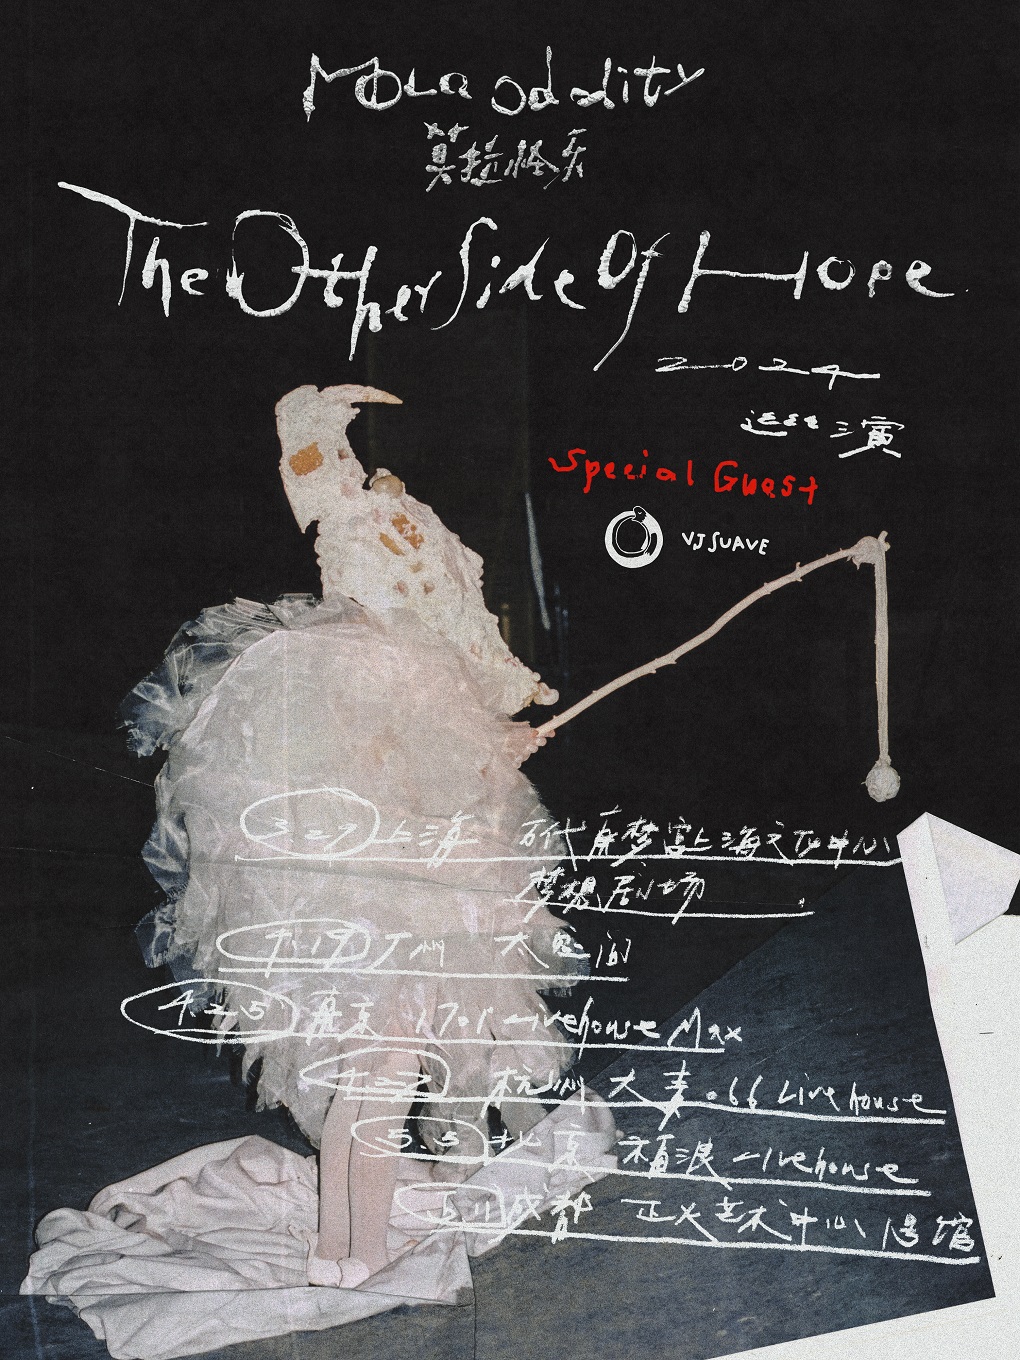 Mola Oddity
莫拉怪牙
The Other Side Of Hope
2024
巡演
Special Guest
VJ SUAVE
3.27 上海 万代南梦宫上海文化中心
梦想剧场
4.19 广州 太空间
4.25 南京 1701 Livehouse Max
4.27 杭州 大麦.66 Livehouse
5.5 北京 福浪 Livehouse
5.11 成都 正火艺术中心 馆